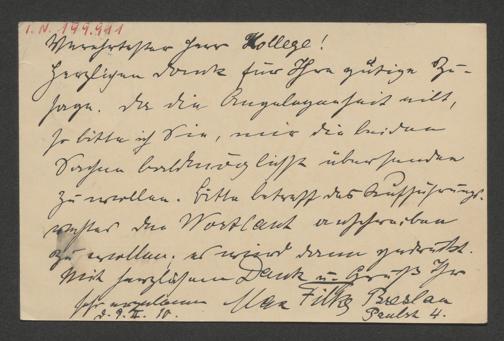 I.N. 199.911
Verehrtester Herr Kollege!
Herzlichen Dank für Ihre gütige Zu-
sage. Da die Angelegenheit eilt,
so bitte ich Sie, mir die beiden
Sachen baldmöglichst übersenden
zu wollen. Bitte betreff des Aufführungs-
rechtes den Wortlaut anschreiben
zu wollen; es wird dann gedruckt.
Mit herzlichem Dank u. Gruß Ihr
sehr ergebener Max Filke Breslau
d. 9. II. 10. Paulst 4.